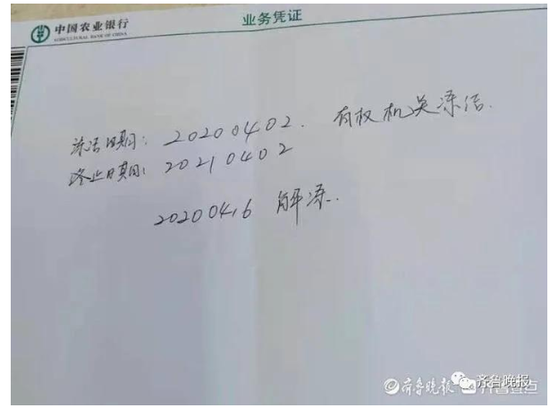 中国农业银行 业务凭证
AGRICULTURAL BANK OF CHINA
冻结日期: 20200402. 有权机关冻结.
终止日期: 20210402
20200416 解冻.
齐鲁晚报 齐鲁壹点
齐鲁晚报